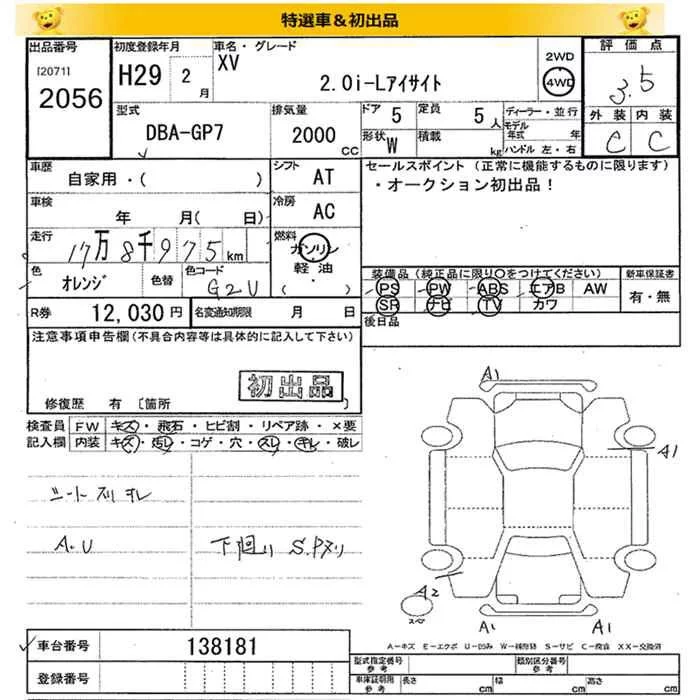 特選車＆初出品
出品番号
[2071]
2056
初度登録年月
H29 2月
車名・グレード
XV
2.0i-Lアイサイト
2WD
4WD
評価点
3.5
外装 内装
C C
型式
DBA-GP7
排気量
2000
CC
ドア 5
定員 5人
形状 W
積載 kg
ディーラー・並行
モデル年式 年
ハンドル 左・右
車歴
自家用・( )
シフト
AT
セールスポイント（正常に機能するものに限ります）
・オークション初出品！
車検
年 月( 日)
冷房
AC
走行
17万8千975km
燃料
ガソリン
軽油
( )
色
オレンジ
色替
色コード
G2U
装備品（純正品に限り○をつけてください）
PS PW ABS エアB AW
SR ナビ TV カワ
新車保証書
有・無
R券 12,030円
名変通知期限 月 日
後日品
注意事項申告欄(不具合内容等は具体的に記入して下さい)
初出品
修復歴 有［箇所 ］
検査員記入欄
FW キズ・飛石・ヒビ割・リペア跡・×要
内装 キズ・汚レ・コゲ・穴・スレ・キレ・破レ
シートスリキレ
A.U
下廻り S.Pヌリ
A1
A1
A2
スペア
A1
A1
車台番号 138181
登録番号
A－キズ E－エクボ U－凹み W－補修跡 S－サビ C－腐食 XX－交換済
型式指定番号 参考
類別区分番号 参考
車庫証明用 参考
長さ cm
幅 cm
高さ cm